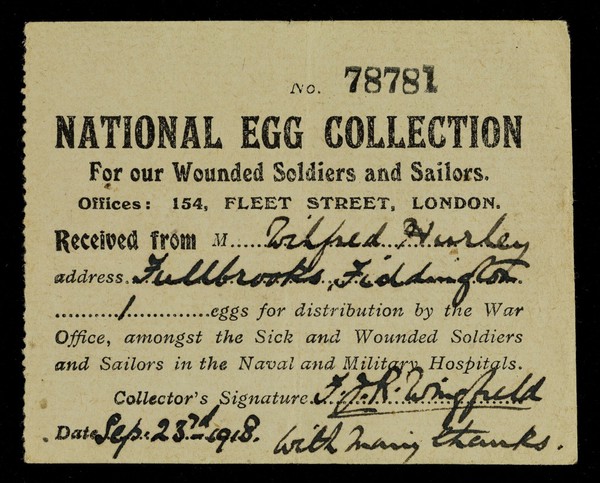 No. 78781
NATIONAL EGG COLLECTION
For our Wounded Soldiers and Sailors.
Offices: 154, FLEET STREET, LONDON.
Received from M.....Wilfred Hurley
address.Fullbrooks, Fiddington.
..........1............eggs for distribution by the War
Office, amongst the Sick and Wounded Soldiers
and Sailors in the Naval and Military Hospitals.
Collector's Signature.F.J.R. Wingfield
Date Sep: 23rd 1918.
With many thanks.